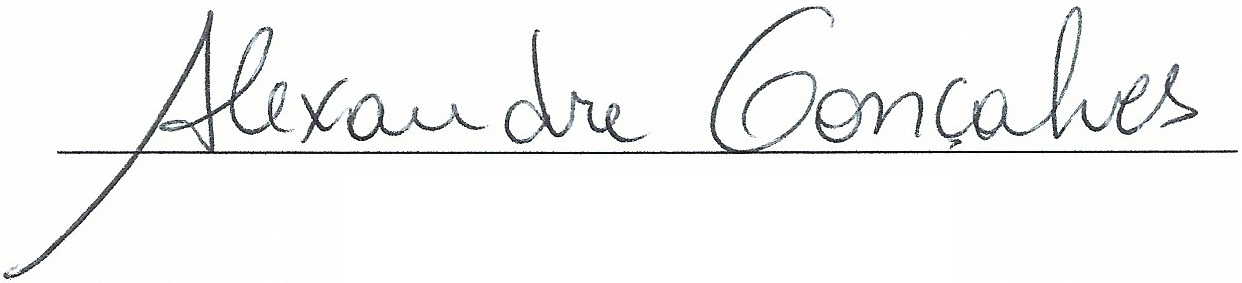 Alexandre Gonçalves